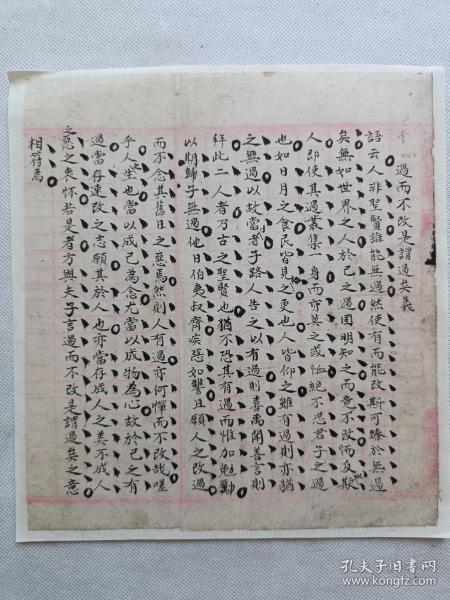 過而不改是謂過矣義
語云人非聖賢誰能無過然使有而能改斯可臻於無過
矣無如世界之人於己之過固明知之而竟不改而反欺
人即使其過叢集一身而亦莫之或恤絕不思君子之過
也如日月之食民皆見之更也人皆仰之雖有過則亦猶
之無過以故當者子路人告之以有過則喜禹聞善言則
拜此二人者乃古之聖賢也猶不恐其有過而惟加勉勵
以期歸于無過他日伯夷叔齊疾惡如讐且願人之改過
而不念其舊日之惡焉然則人有過亦何憚而不改哉嗟
乎人生也當以成己為念尤當以成物為心故於己之有
過當存速改之志願其於人也亦當存成人之美不成人
之惡之衷懷若是者方與夫子言過而不改是謂過矣之意
相符焉
孔夫子旧书网
www.kongfz.com